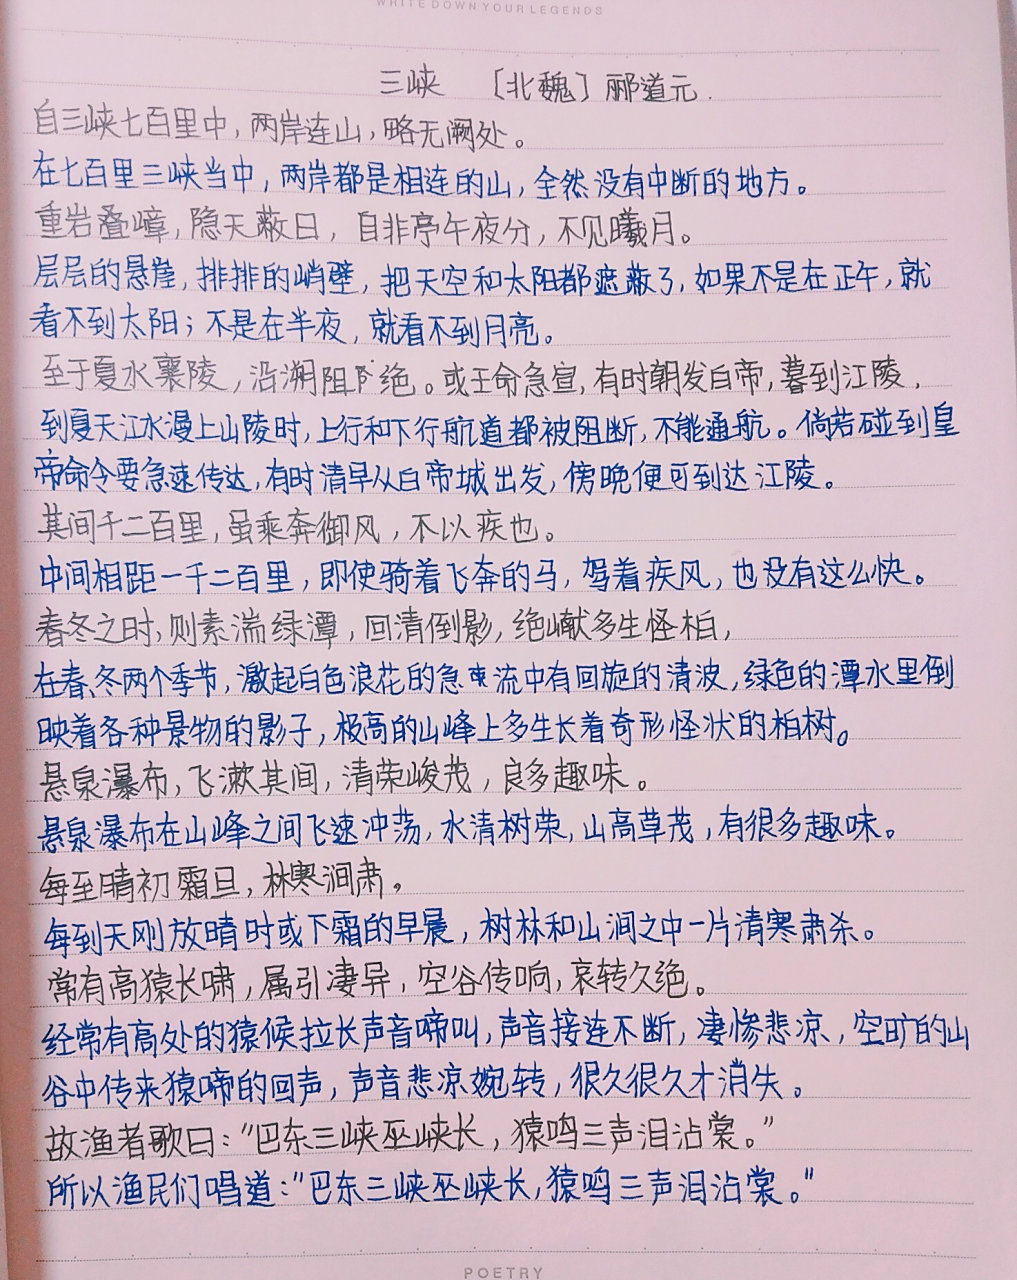 WRITE DOWN YOUR LEGENDS
三峡 〔北魏〕郦道元.
自三峡七百里中，两岸连山，略无阙处。
在七百里三峡当中，两岸都是相连的山，全然没有中断的地方。
重岩叠嶂，隐天蔽日，自非亭午夜分，不见曦月。
层层的悬崖，排排的峭壁，把天空和太阳都遮蔽了，如果不是在正午，就
看不到太阳；不是在半夜，就看不到月亮。
至于夏水襄陵，沿溯阻绝。或王命急宣，有时朝发白帝，暮到江陵，
到夏天江水漫上山陵时，上行和下行航道都被阻断，不能通航。倘若碰到皇
帝命令要急速传达，有时清早从白帝城出发，傍晚便可到达江陵。
其间千二百里，虽乘奔御风，不以疾也。
中间相距一千二百里，即使骑着飞奔的马，驾着疾风，也没有这么快。
春冬之时，则素湍绿潭，回清倒影，绝巘多生怪柏，
在春、冬两个季节，激起白色浪花的急流中有回旋的清波，绿色的潭水里倒
映着各种景物的影子，极高的山峰上多生长着奇形怪状的柏树。
悬泉瀑布，飞漱其间，清荣峻茂，良多趣味。
悬泉瀑布在山峰之间飞速冲荡，水清树荣，山高草茂，有很多趣味。
每至晴初霜旦，林寒涧肃，
每到天刚放晴时或下霜的早晨，树林和山涧之中一片清寒肃杀。
常有高猿长啸，属引凄异，空谷传响，哀转久绝。
经常有高处的猿候拉长声音啼叫，声音接连不断，凄惨悲凉，空旷的山
谷中传来猿啼的回声，声音悲凉婉转，很久很久才消失。
故渔者歌曰："巴东三峡巫峡长，猿鸣三声泪沾裳。"
所以渔民们唱道："巴东三峡巫峡长，猿鸣三声泪沾裳。"
POETRY